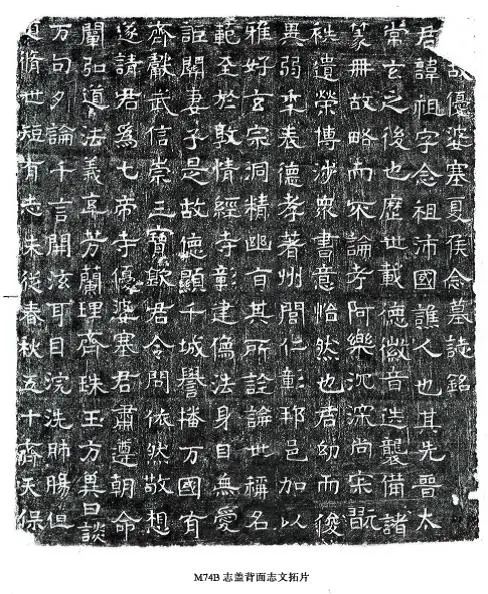 故優婆塞夏侯念墓誌銘
君諱祖字念祖沛國譙人也其先晉太
常玄之後也歷世載德徽音迭襲備諸
篆冊故略而不論考阿樂沉深尚宋翫
袟遺榮博涉衆書意怡然也君幼而俊
異弱年表德孝著州閭仁彰邦邑加以
雅好玄宗洞精幽旨其所詮論世稱名
範至於敦情經寺彰建僞法身目無愛
詎聞妻子是故德顯千城譽播万國有
齊獻武信崇三寶欽君令問依然敬想
遂請君爲七帝寺優婆塞君肅遵朝命
闡弘道法義高芳蘭理齊珠玉方冀日談
万句夕論千言開泫耳目浣洗肺腸但
道脩世短有志未從春秋五十齊天保
M74B 志盖背面志文拓片